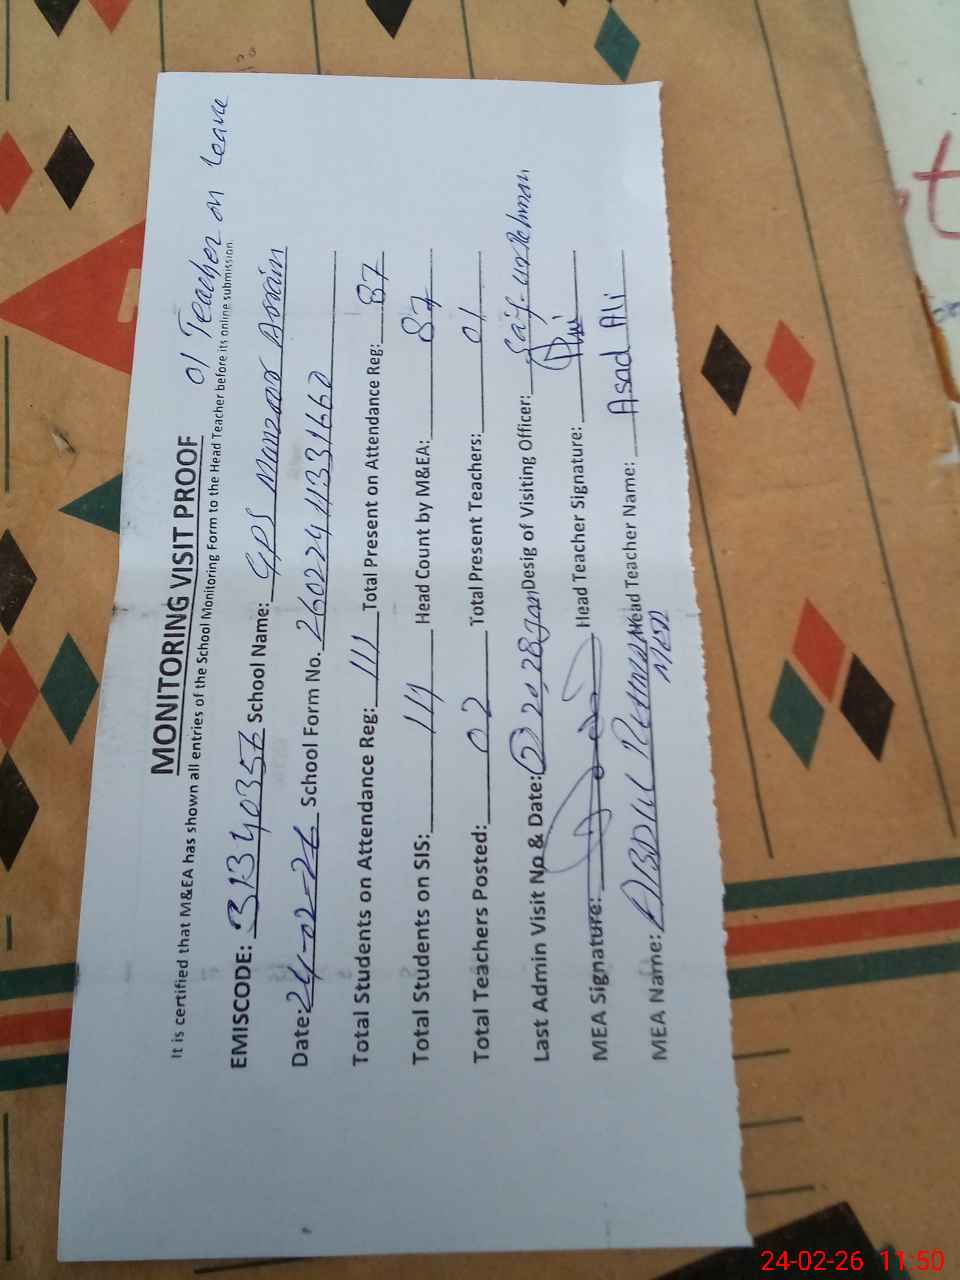 MONITORING VISIT PROOF
01 Teacher on leave
It is certified that M&EA has shown all entries of the School Monitoring Form to the Head Teacher before its online submission.
EMISCODE: 31340357 School Name: GPS Manzoor
Date: 24-02-26 School Form No. 26022411331660
Total Students on Attendance Reg: 111 Total Present on Attendance Reg: 87
Total Students on SIS: 111 Head Count by M&EA: 87
Total Teachers Posted: 02 Total Present Teachers: 01
Last Admin Visit No & Date: 28 Jan Desig of Visiting Officer: Saif-ur-Rehman
MEA Signature: Head Teacher Signature:
MEA Name: ABDUL REHMAN Head Teacher Name: Asad Ali
24-02-26 11:50